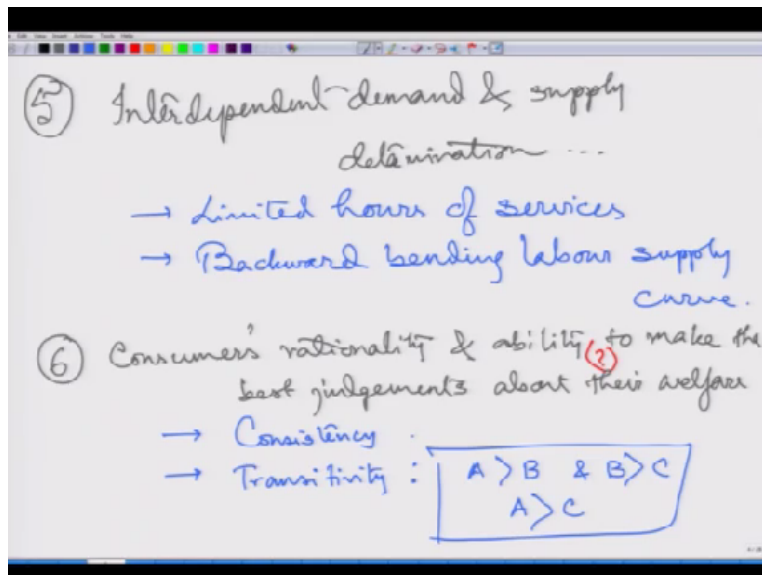 5 Interdependent demand & supply
determination ...
→ Limited hours of services
→ Backward bending labour supply
curve.
6 Consumer's rationality & ability (?) to make the
best judgements about their welfare
→ Consistency.
→ Transitivity : A > B & B > C
A > C